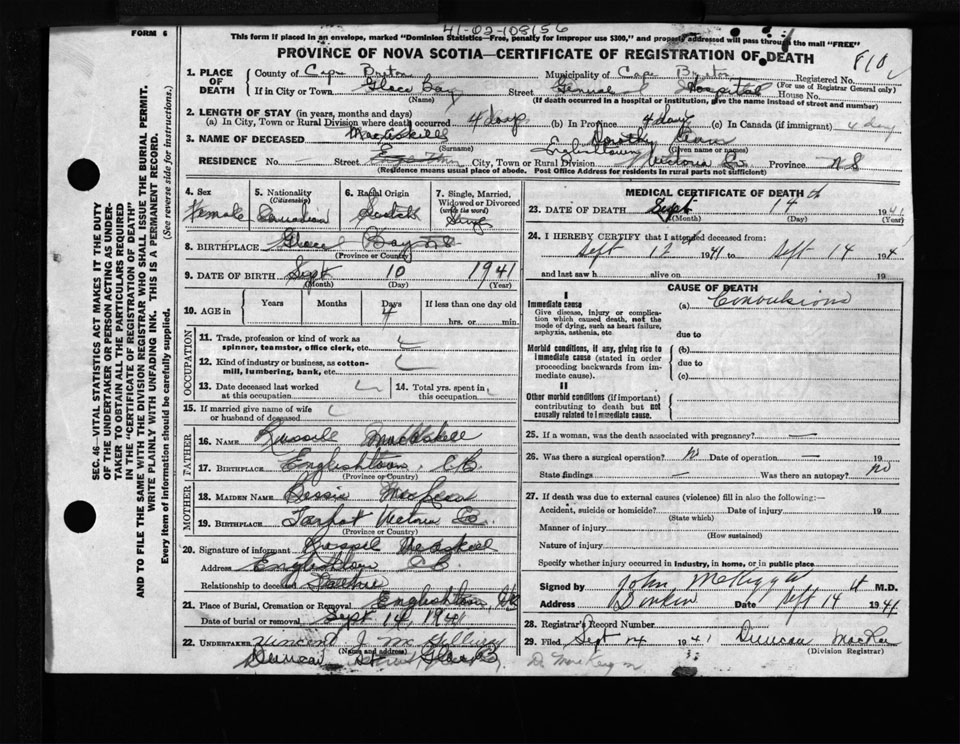 41-02-108156
FORM 6
This form if placed in an envelope, marked "Dominion Statistics—Free, penalty for improper use $300," and properly addressed will pass through the mail "FREE"
PROVINCE OF NOVA SCOTIA—CERTIFICATE OF REGISTRATION OF DEATH
810
1. PLACE OF DEATH
County of Cape Breton Municipality of Cape Breton Registered No.
(For use of Registrar General only)
If in City or Town Glace Bay Street General Hospital House No.
(Name) (If death occurred in a hospital or institution, give the name instead of street and number)
2. LENGTH OF STAY (in years, months and days)
(a) In City, Town or Rural Division where death occurred 4 days (b) In Province 4 days (c) In Canada (if immigrant) 4 days
3. NAME OF DECEASED MacAskill Dorothy
(Surname) (Given name or names)
RESIDENCE No. — Street City, Town or Rural Division Englishtown Victoria Co. Province N S
(Residence means usual place of abode. Post Office Address for residents in rural parts not sufficient)
4. Sex
Female
5. Nationality
(Citizenship)
Canadian
6. Racial Origin
Scotch
7. Single, Married, Widowed or Divorced
(write the word)
Single
8. BIRTHPLACE Glace Bay NS
(Province or Country)
9. DATE OF BIRTH Sept 10 1941
(Month) (Day) (Year)
10. AGE in
Years Months Days If less than one day
4 hrs. or min.
OCCUPATION
11. Trade, profession or kind of work as spinner, teamster, office clerk, etc.
12. Kind of industry or business, as cotton-mill, lumbering, bank, etc.
13. Date deceased last worked at this occupation
14. Total yrs. spent in this occupation
15. If married give name of wife or husband of deceased
FATHER
16. NAME Russell MacAskill
17. BIRTHPLACE Englishtown, C.B.
(Province or Country)
MOTHER
18. MAIDEN NAME Bessie MacLean
19. BIRTHPLACE Tarbot Victoria Co.
(Province or Country)
20. Signature of informant Russel McAskill
Address Englishtown C B
Relationship to deceased Father
21. Place of Burial, Cremation or Removal Englishtown,
Date of burial or removal Sept 14, 1941
22. UNDERTAKER Vincent J. McGillivray
(Name and address)
Street Glace B
MEDICAL CERTIFICATE OF DEATH
23. DATE OF DEATH Sept 14th 1941
(Month) (Day) (Year)
24. I HEREBY CERTIFY that I attended deceased from:
Sept 12 1941 to Sept 14 194
and last saw h alive on 19
CAUSE OF DEATH
I
Immediate cause (a) Convulsions
Give disease, injury or complication which caused death, not the mode of dying, such as heart failure, asphyxia, asthenia, etc.
due to
Morbid conditions, if any, giving rise to immediate cause (stated in order proceeding backwards from immediate cause). (b)
due to
(c)
II
Other morbid conditions (if important) contributing to death but not causally related to immediate cause.
25. If a woman, was the death associated with pregnancy? —
26. Was there a surgical operation? No Date of operation — 19
State findings — Was there an autopsy? no
27. If death was due to external causes (violence) fill in also the following:—
Accident, suicide or homicide? Date of injury 19
(State which)
Manner of injury
(How sustained)
Nature of injury
Specify whether injury occurred in industry, in home, or in public place
Signed by John M. D.
Address Date Sept 14 1941
28. Registrar's Record Number
29. Filed Sept 14 1941 Duncan MacKae
(Division Registrar)
SEC. 46—VITAL STATISTICS ACT MAKES IT THE DUTY OF THE UNDERTAKER OR PERSON ACTING AS UNDERTAKER TO OBTAIN ALL THE PARTICULARS REQUIRED IN THE "CERTIFICATE OF REGISTRATION OF DEATH"
AND TO FILE THE SAME WITH THE DIVISION REGISTRAR WHO SHALL ISSUE THE BURIAL PERMIT.
WRITE PLAINLY WITH UNFADING INK. THIS IS A PERMANENT RECORD.
Every item of information should be carefully supplied. (See reverse side for instructions.)